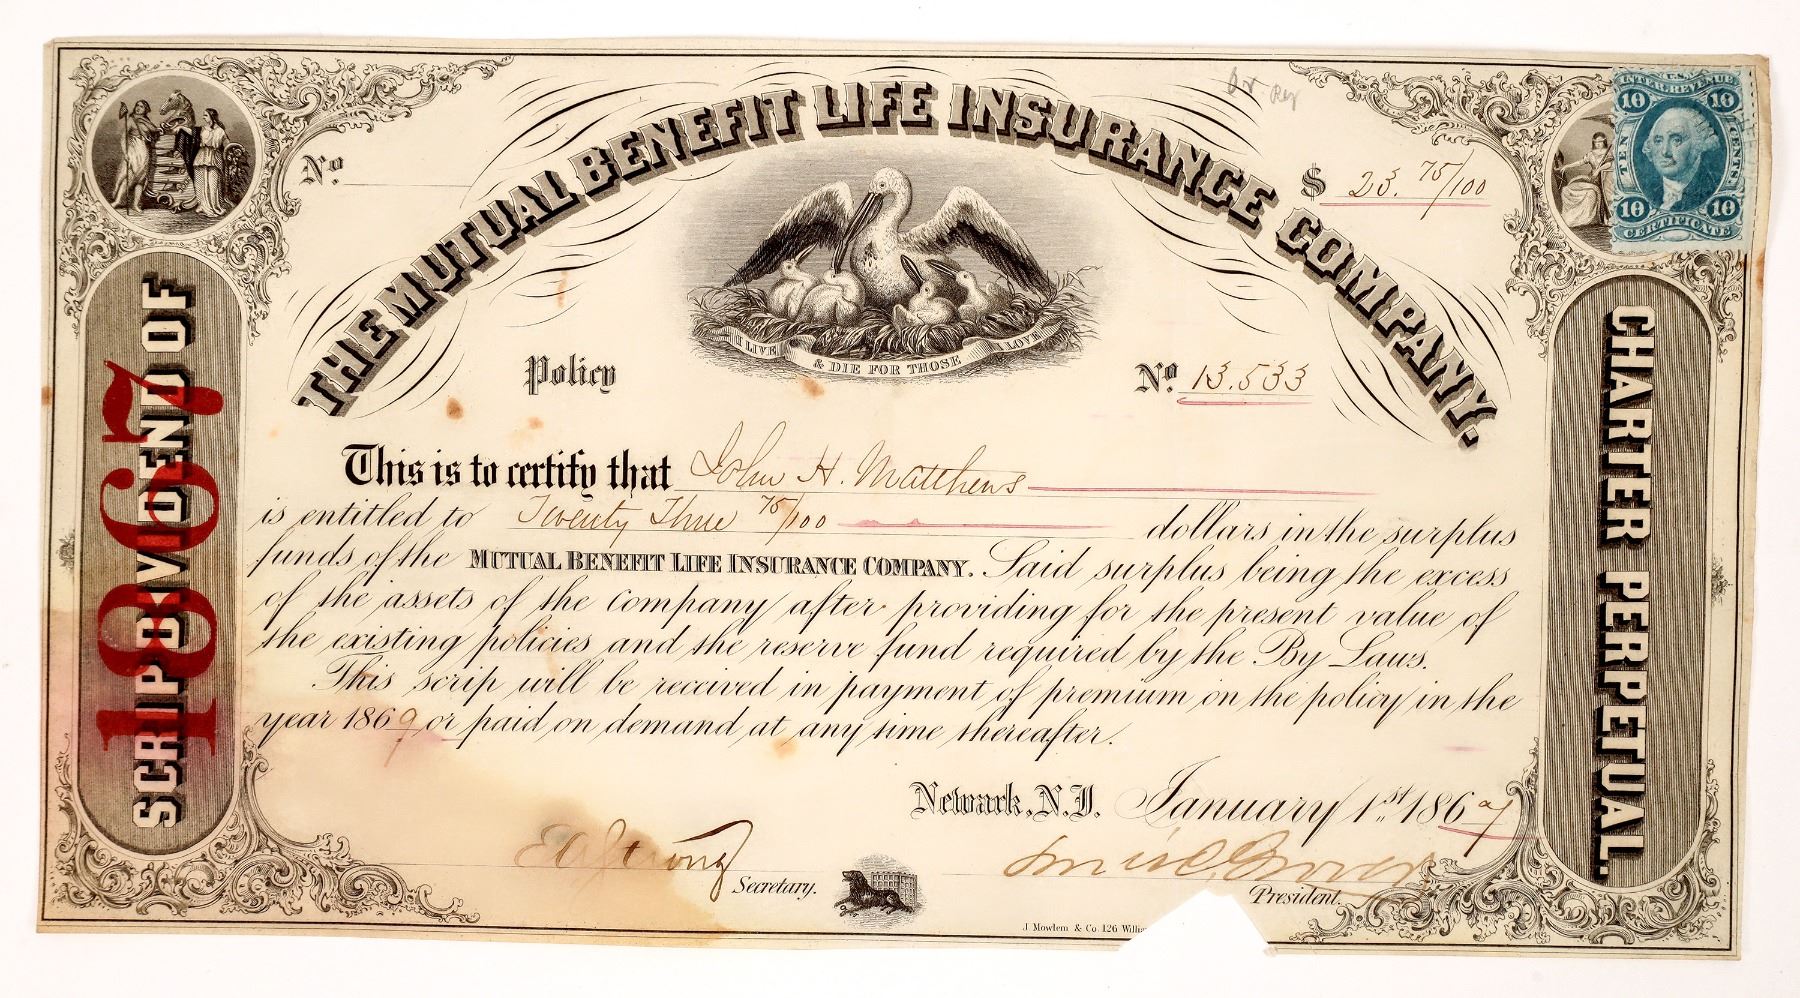 THE MUTUAL BENEFIT LIFE INSURANCE COMPANY.
No.
$ 23. 75/100
INTER. REVENUE
U.S.
10 10
TEN CENTS
10 10
CERTIFICATE
I LIVE & DIE FOR THOSE I LOVE
Policy No. 13.533
SCRIP DIVIDEND OF
1867
CHARTER PERPETUAL.
This is to certify that John H. Matthews
is entitled to Twenty Three 75/100 dollars in the surplus
funds of the MUTUAL BENEFIT LIFE INSURANCE COMPANY. Said surplus being the excess
of the assets of the company after providing for the present value of
the existing policies and the reserve fund required by the By Laws.
This scrip will be received in payment of premium on the policy in the
year 1869 or paid on demand at any time thereafter.
Newark, N.J. January 1st 1867
E A Strong
Secretary.
President.
J Mowlem & Co. 126